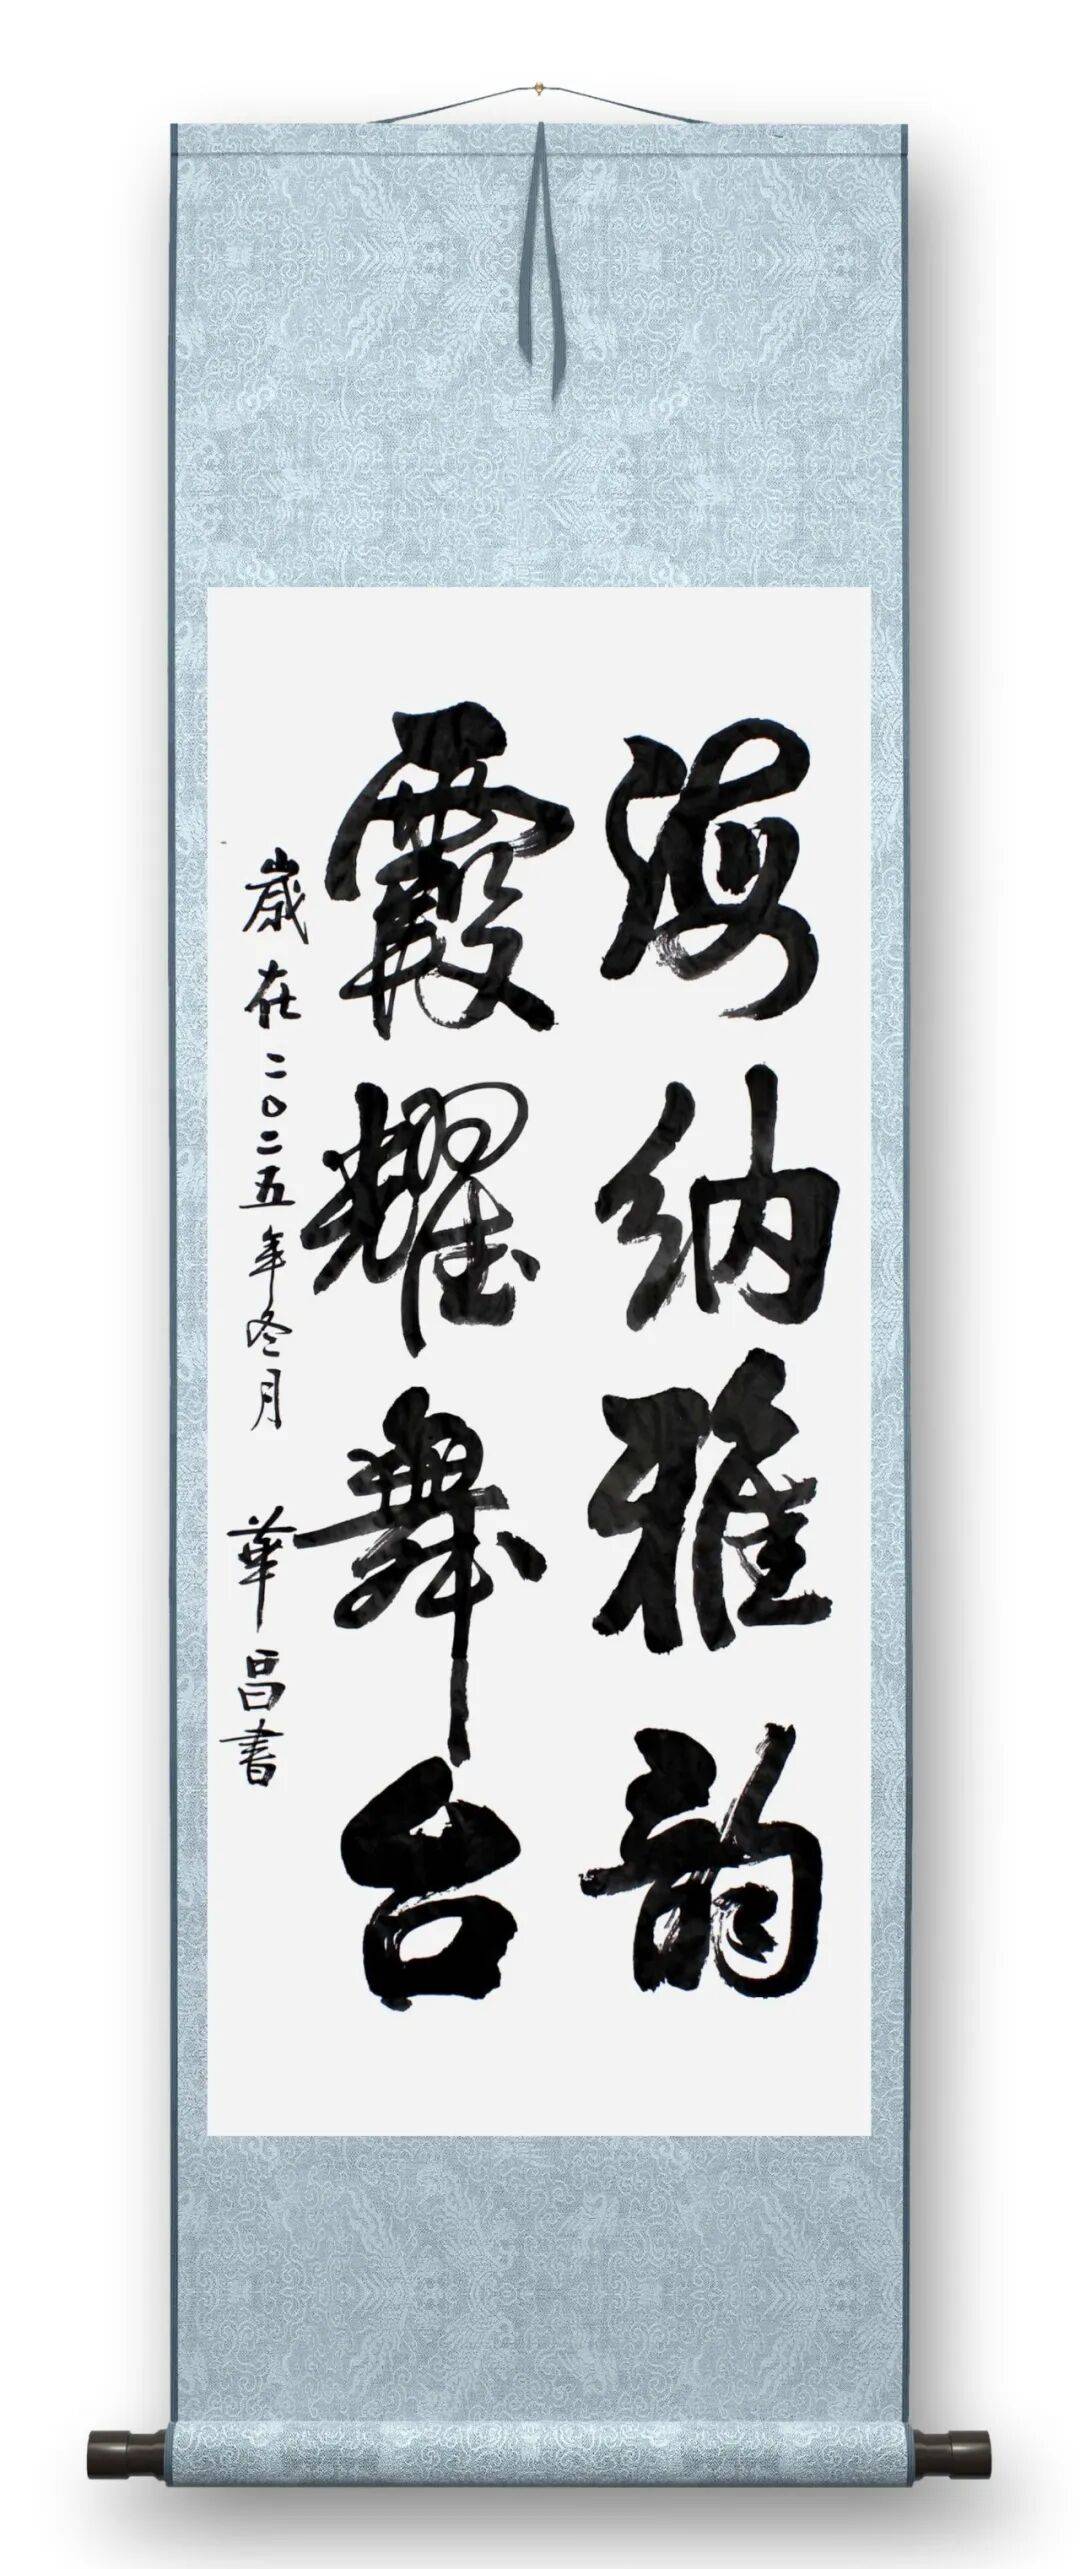 海纳雅韵
霞耀舞台
歲在二〇二五年冬月 華昌書